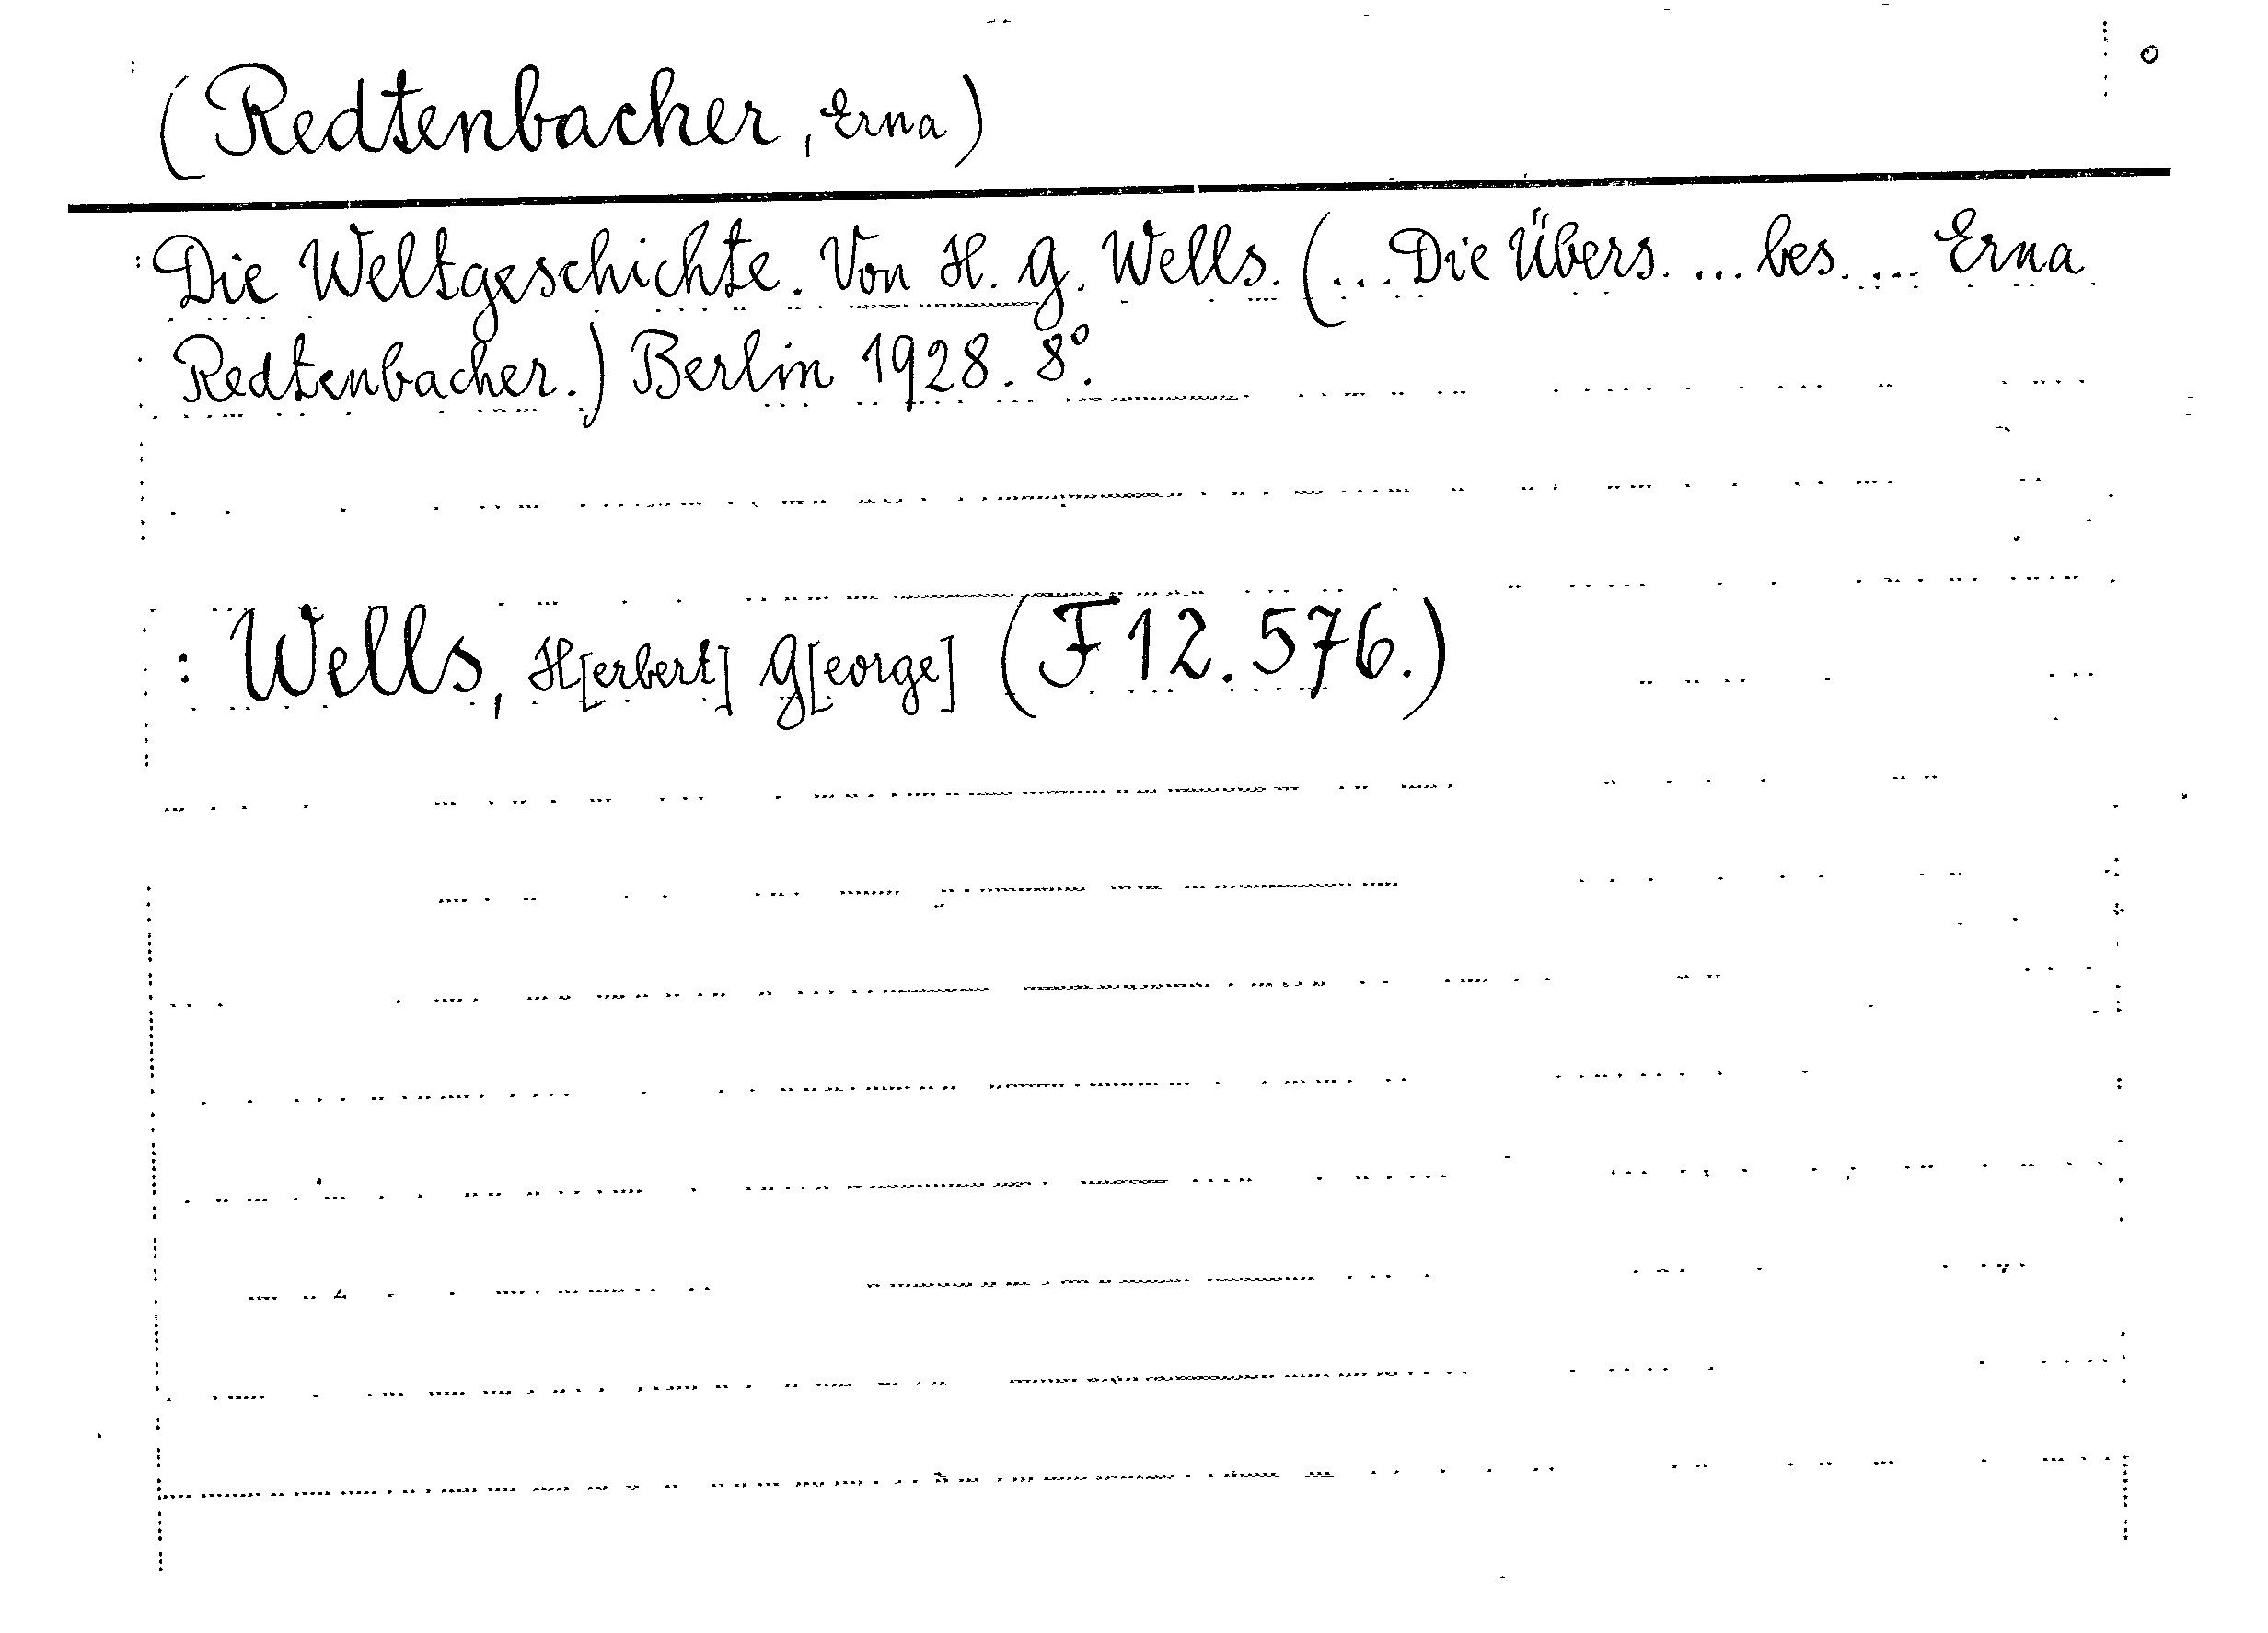 (Redtenbacher, Erna)
Die Weltgeschichte. Von H. G. Wells. (... Die Übers. ... bes. ... Erna
Redtenbacher.) Berlin 1928. 8°.
: Wells, H[erbert] G[eorge] (F 12.576.)